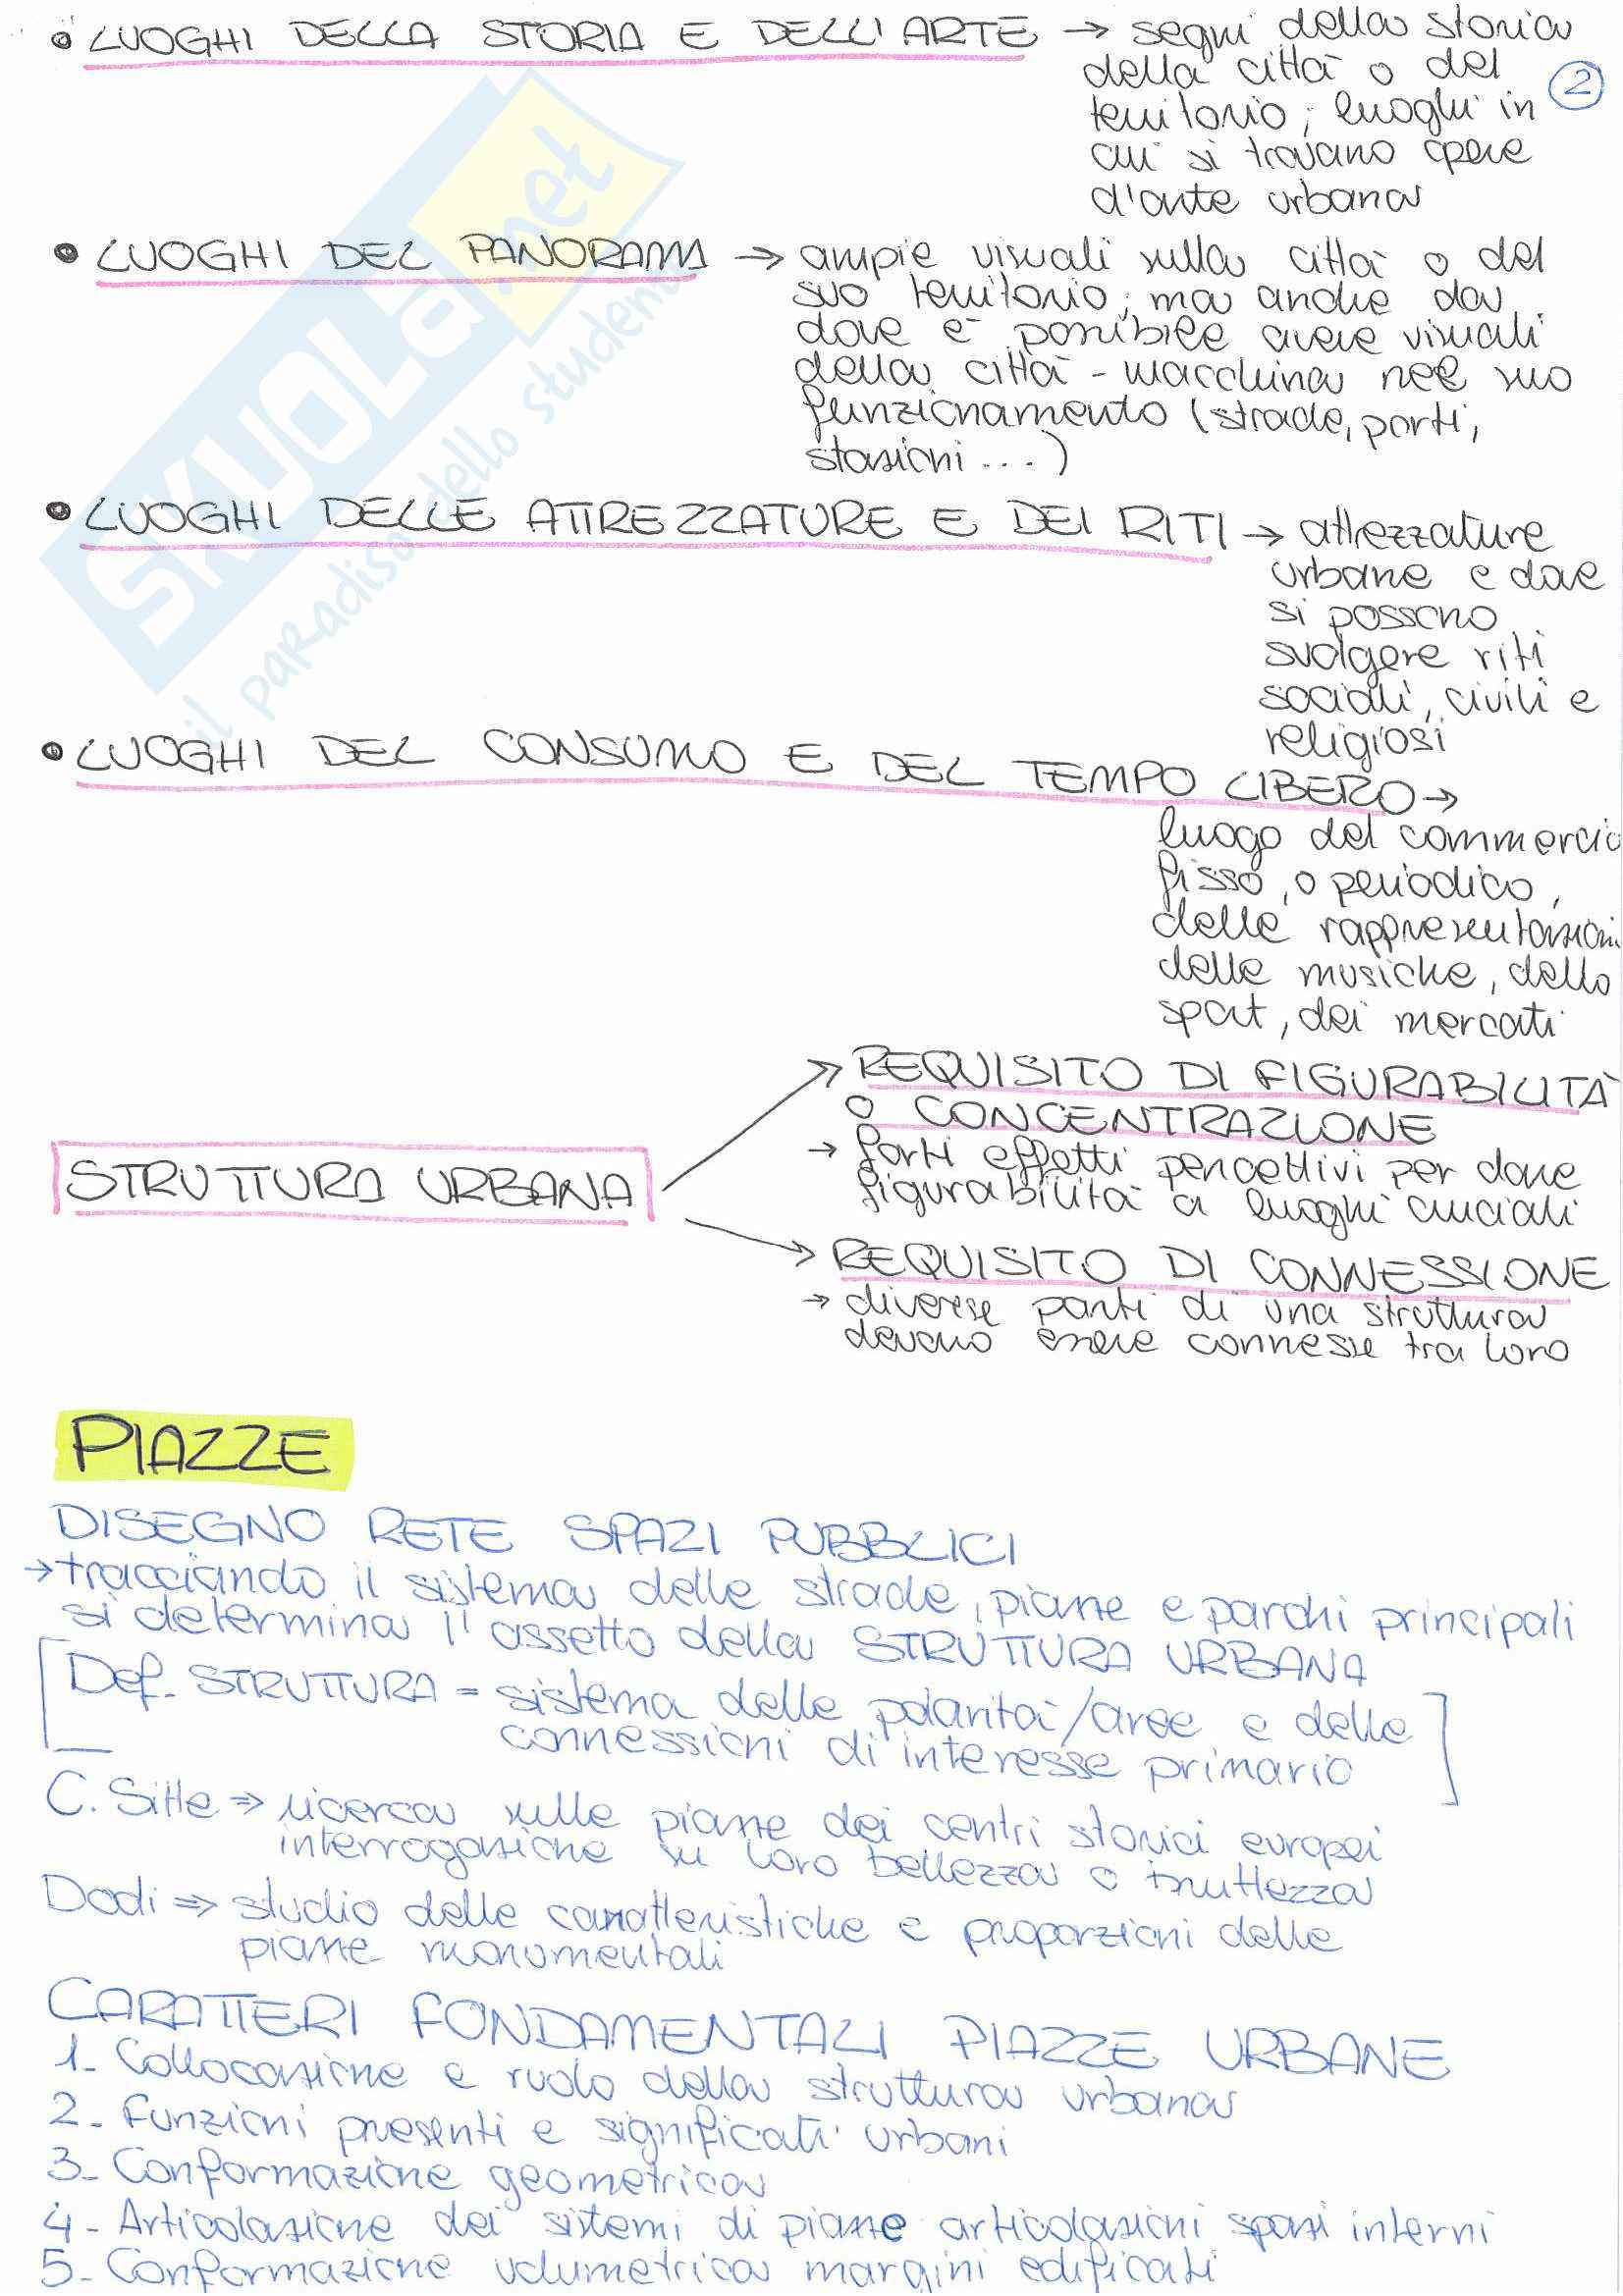 • LUOGHI DELLA STORIA E DELL'ARTE → segni della storia
della città o del
territorio; luoghi in
cui si trovano opere
d'arte urbana
2
• LUOGHI DEL PANORAMA → ampie visuali sulla città o del
suo territorio; ma anche da
dove è possibile avere visuali
della città-macchina nel suo
funzionamento (strade, porti,
stazioni...)
• LUOGHI DELLE ATTREZZATURE E DEI RITI → attrezzature
urbane e dove
si possono
svolgere riti
sociali, civili e
religiosi
• LUOGHI DEL CONSUMO E DEL TEMPO LIBERO →
luogo del commercio
fisso, o periodico,
delle rappresentazioni
delle musiche, dello
sport, dei mercati
STRUTTURA URBANA
→ REQUISITO DI FIGURABILITÀ
O CONCENTRAZIONE
→ forti effetti percettivi per dare
figurabilità a luoghi cruciali
→ REQUISITO DI CONNESSIONE
→ diverse parti di una struttura
devono essere connesse tra loro
PIAZZE
DISEGNO RETE SPAZI PUBBLICI
→ tracciando il sistema delle strade, piazze e parchi principali
si determina l'assetto della STRUTTURA URBANA
[Def. STRUTTURA = sistema delle polarità/aree e delle
connessioni di interesse primario]
C. Sitte ⇒ ricerca sulle piazze dei centri storici europei
interrogazione su loro bellezza o bruttezza
Dodi ⇒ studio delle caratteristiche e proporzioni delle
piazze monumentali
CARATTERI FONDAMENTALI PIAZZE URBANE
1- Collocazione e ruolo della struttura urbana
2- Funzioni presenti e significati urbani
3- Conformazione geometrica
4- Articolazione dei sistemi di piazze articolazioni spazi interni
5- Conformazione volumetrica margini edificati
SKUOLA.net
il paradiso dello studente